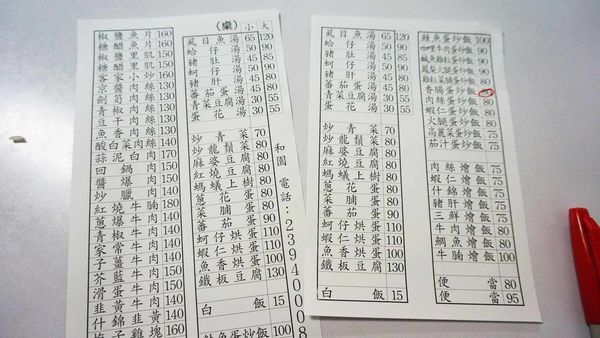 (桌) 小 大
椒鹽魚片 160
糖醋魚片 160
椒鹽里肌 160
糖醋里肌 160
客家小炒 160
京醬肉絲 130
劍筍肉絲 130
青椒肉絲 130
豆干肉絲 130
魚香肉絲 130
酸白菜肉絲 140
蒜泥白肉 170
回鍋肉 150
醬爆肉 150
炒臘肉 140
紅燒牛腩 180
蔥爆牛肉 140
青椒牛肉 140
家常牛肉 140
子薑牛肉 140
芥藍牛肉 150
滑蛋牛肉 140
韭黃牛肉 140
什錦韭黃 140
梅子雞塊 160
虱目魚湯 65 120
蛤仔湯 50 90
豬肚湯 50 90
蚵仔湯 50 90
豬肝湯 45 85
番茄蛋湯 45 80
青菜豆腐湯 30 55
蛋花湯 30 55
炒青菜 70
炒龍鬚菜 80
麻婆豆腐 80
紅燒豆腐 80
螞蟻上樹 80
蔥花蛋 80
菜脯蛋 80
番茄蛋 90
蚵仔烘蛋 110
蝦仁烘蛋 110
魚香烘蛋 100
鐵板豆腐 130
白飯 15
鮭魚蛋炒飯 100
和園 電話:23940008
虱目魚湯 65 120
蛤仔湯 50 90
豬肚湯 50 90
蚵仔湯 50 90
豬肝湯 45 85
番茄蛋湯 45 80
青菜豆腐湯 30 55
蛋花湯 30 55
炒青菜 70
炒龍鬚菜 80
麻婆豆腐 80
紅燒豆腐 80
螞蟻上樹 80
蔥花蛋 80
菜脯蛋 80
番茄蛋 90
蚵仔烘蛋 110
蝦仁烘蛋 110
魚香烘蛋 100
鐵板豆腐 130
白飯 15
鮭魚蛋炒飯 100
咖哩牛肉蛋炒飯 90
鹹魚雞粒蛋炒飯 90
鳳梨火腿蛋炒飯 90
雞粒菜脯蛋炒飯 80
香腸蛋炒飯 80
肉絲蛋炒飯 80
蝦仁蛋炒飯 80
火腿蛋炒飯 80
高麗菜蛋炒飯 75
茄汁蛋炒飯 80
肉絲燴飯 75
蝦仁燴飯 75
什錦燴飯 75
豬肝燴飯 75
三鮮燴飯 75
牛肉燴飯 80
鯛魚燴飯 80
牛腩燴飯 90
便當 80
便當 95